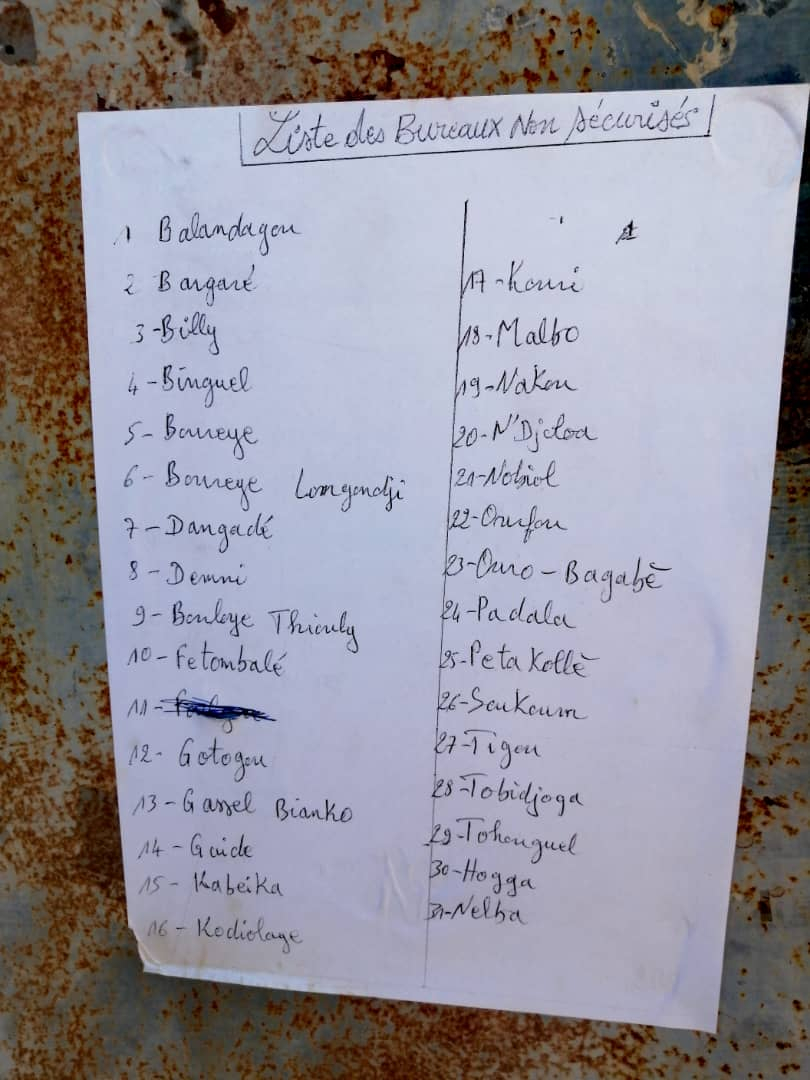 Liste des Bureaux Non Sécurisés
1 Balandagou
2 Bangaré
3-Billy
4-Binguel
5- Boureye
6- Boureye Longondji
7- Dangadé
8- Demni
9- Bouloye Thiouly
10- Fetombalé
11-
12- Gotogou
13- Gassel Bianko
14- Guide
15- Kabeika
16- Kodiolage
17-Kouri
18-Malbo
19-Nakou
20-N'Djoloa
21-Nobiol
22-Ourfou
23-Ouro-Bagabè
24-Padala
25-Peta Kollè
26-Soukoum
27-Tigou
28-Tobidjoga
29-Tohonguel
30-Hogga
31-Nelba